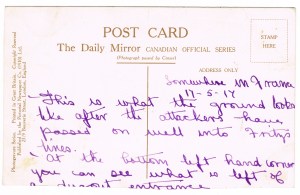 POST CARD
The Daily Mirror CANADIAN OFFICIAL SERIES
(Photograph passed by Censor)
STAMP
HERE
ADDRESS ONLY
Somewhere in France
17-5-17
This is what the ground looks
like after the attackers have
passed on well into Fritz's
lines.
At the bottom left hand corner
you can see what is left of
a dugout entrance